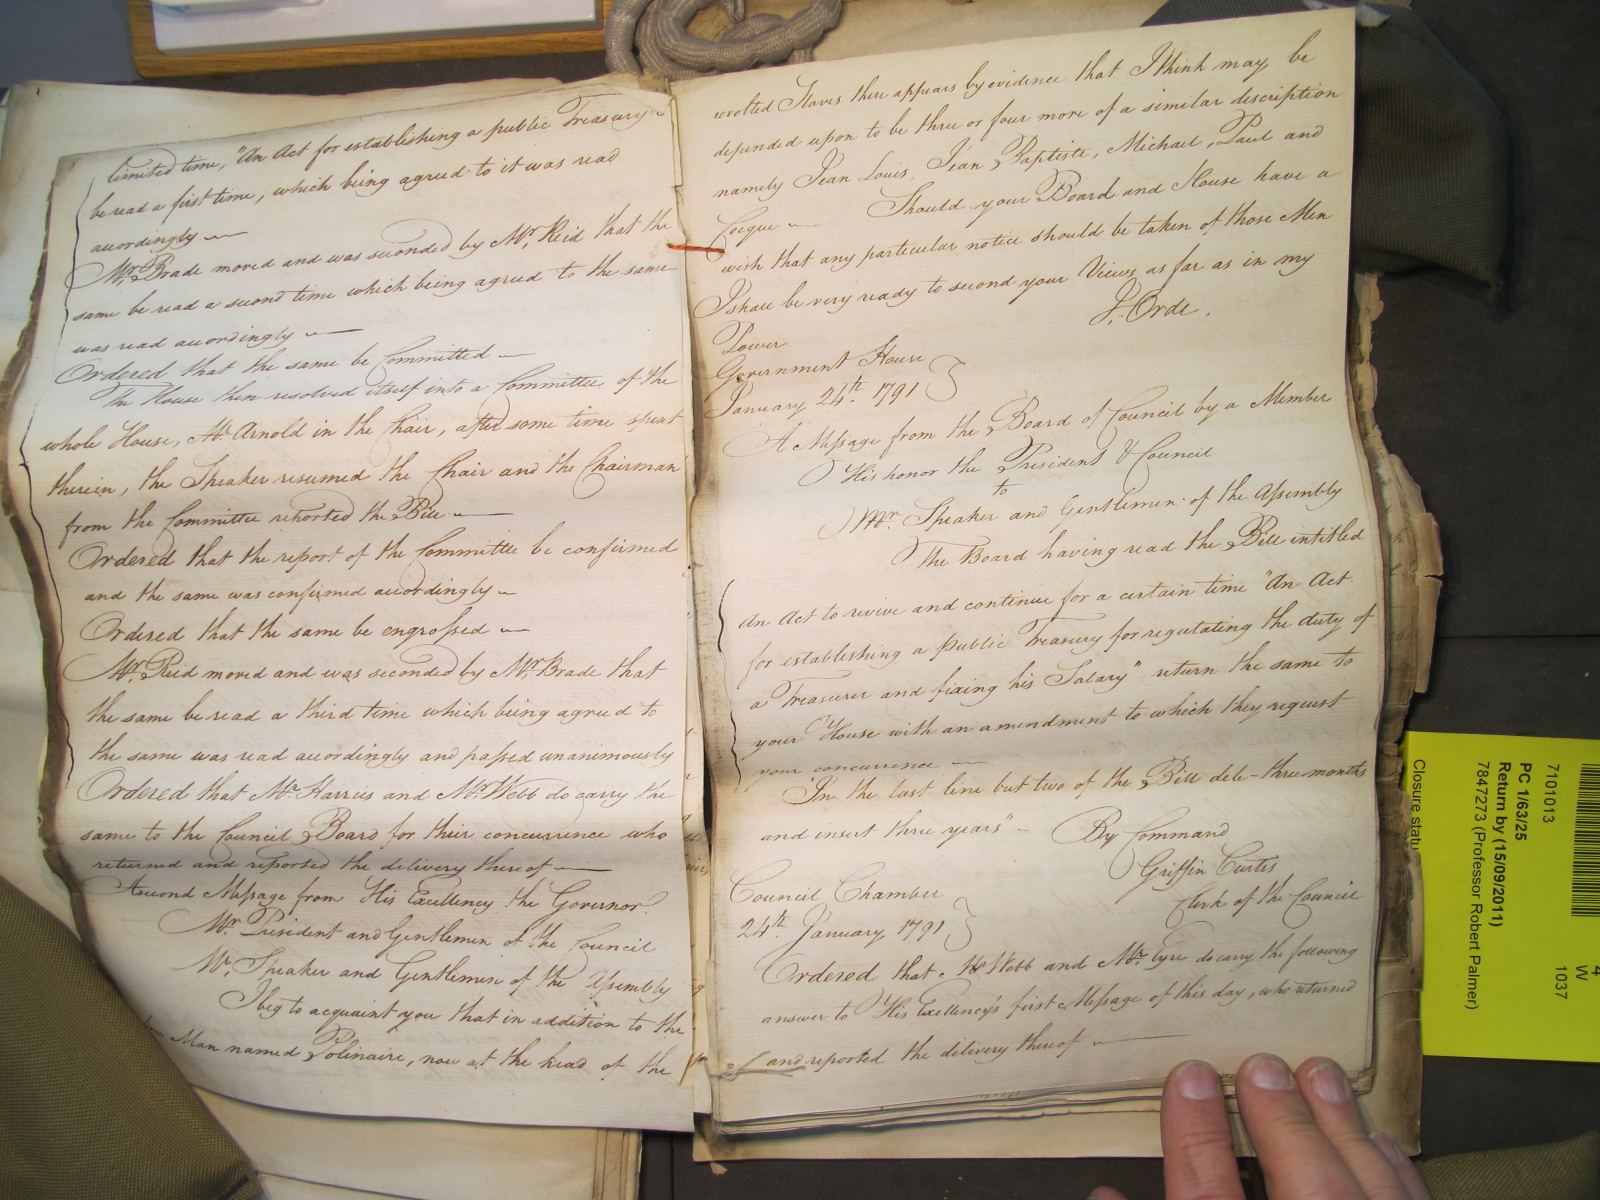 limited time, "An Act for establishing a public Treasury"
be read a first time, which being agreed to it was read
accordingly
Mr. Brade moved and was seconded by Mr. Reid that the
same be read a second time which being agreed to the same
was read accordingly
Ordered that the same be Committed
The House then resolved itself into a Committee of the
whole House, Mr. Arnold in the Chair, after some time spent
therein, the Speaker resumed the Chair and the Chairman
from the Committee reported the Bill
Ordered that the report of the Committee be confirmed
and the same was confirmed accordingly
Ordered that the same be engrossed
Mr. Reid moved and was seconded by Mr. Brade that
the same be read a third time which being agreed to
the same was read accordingly and passed unanimously
Ordered that Mr. Harris and Mr. Webb do carry the
same to the Council Board for their concurrence who
returned and reported the delivery thereof
A second Message from His Excellency the Governor
Mr. President and Gentlemen of the Council
Mr. Speaker and Gentlemen of the Assembly
I beg to acquaint you that in addition to the
Man named Polinaire, now at the head of the
revolted Slaves there appears by evidence that I think may be
depended upon to be three or four more of a similar description
namely Jean Louis, Jean Baptiste, Michael, Paul and
Cocque Should your Board and House have a
wish that any particular notice should be taken of those Men
I shall be very ready to second your Views as far as in my
Power J. Orde.
Government House
January 24th. 1791
A Message from the Board of Council by a Member
His honor the President & Council
to
Mr. Speaker and Gentlemen of the Assembly
The Board having read the Bill intitled
An Act to revive and continue for a certain time "An Act
for establishing a public Treasury for regulating the duty of
a Treasurer and fixing his Salary" return the same to
your House with an amendment to which they request
your concurrence
"In the last line but two of the Bill dele three months
and insert three years" By Command
Griffin Curtis
Clerk of the Council
Council Chamber
24th. January 1791
Ordered that Mr Webb and Mr. Eyre do carry the following
answer to His Excellency's first Message of this day, who returned
and reported the delivery thereof
7101013
PC 1/63/25
Return by (15/09/2011)
7847273 (Professor Robert Palmer)
Closure statu
4
W
1037